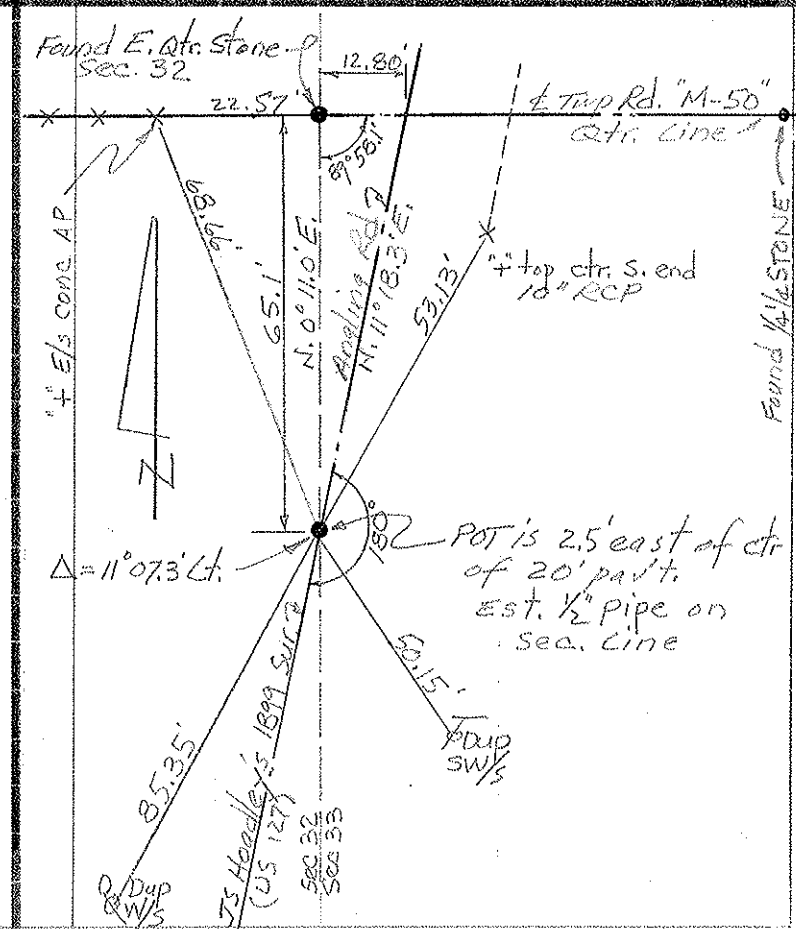 Found E. Qtr. Stone
Sec. 32
12.80'
22.57'
℄ Twp Rd. "M-50"
Qtr. Line
89°58.1'
"+" E/s conc AP
68.66'
65.1'
N. 0°11.0'E.
Angling Rd
N. 11°18.3'E.
53.13'
"+" top ctr. S. end
18" RCP
Found 1/4 1/4 STONE
Z
180°
Δ = 11°07.3' Lt.
POT is 2.5' east of ctr
of 20' pav't.
Est. 1/2" pipe on
Sec. Line
50.15'
Dup
SW/s
85.35'
JS Hoadley's 1899 Sur
(US 127)
Sec 32
Sec 33
Dup
W/s